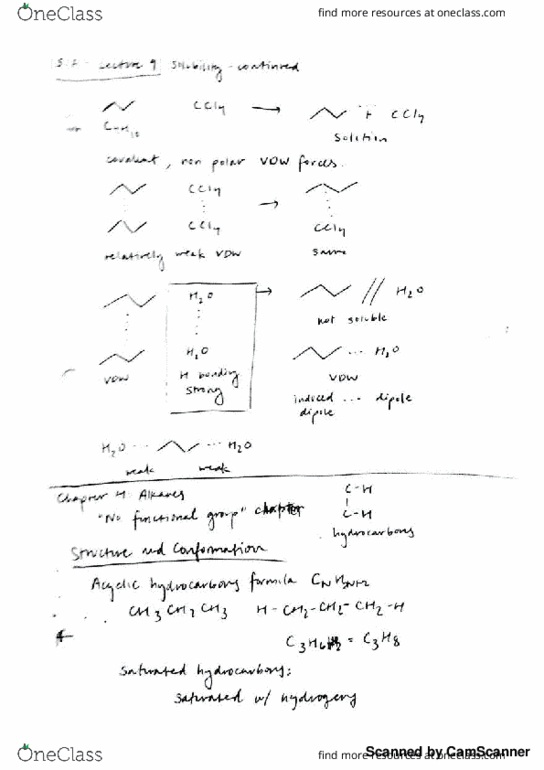 OneClass
find more resources at oneclass.com
Lecture 9 Solubility - continued
CCl4 → + CCl4
Solution
covalent, non polar VDW forces.
CCl4
CCl4 → CCl4
relatively weak VDW same
H2O → // H2O
not soluble
H2O ... H2O
VDW H bonding strong VDW
induced ... dipole
dipole
H2O ... ... H2O
weak weak
Chapter 4: Alkanes
C-H
"No functional group" chapter
C-H
hydrocarbons
Structure and Conformation
Acyclic hydrocarbons formula
CH3 CH2 CH3 H-CH2-CH2-CH2-H
= C3H8
saturated hydrocarbons:
saturated w/ hydrogens
OneClass
find more resources at oneclass.com
Scanned by CamScanner